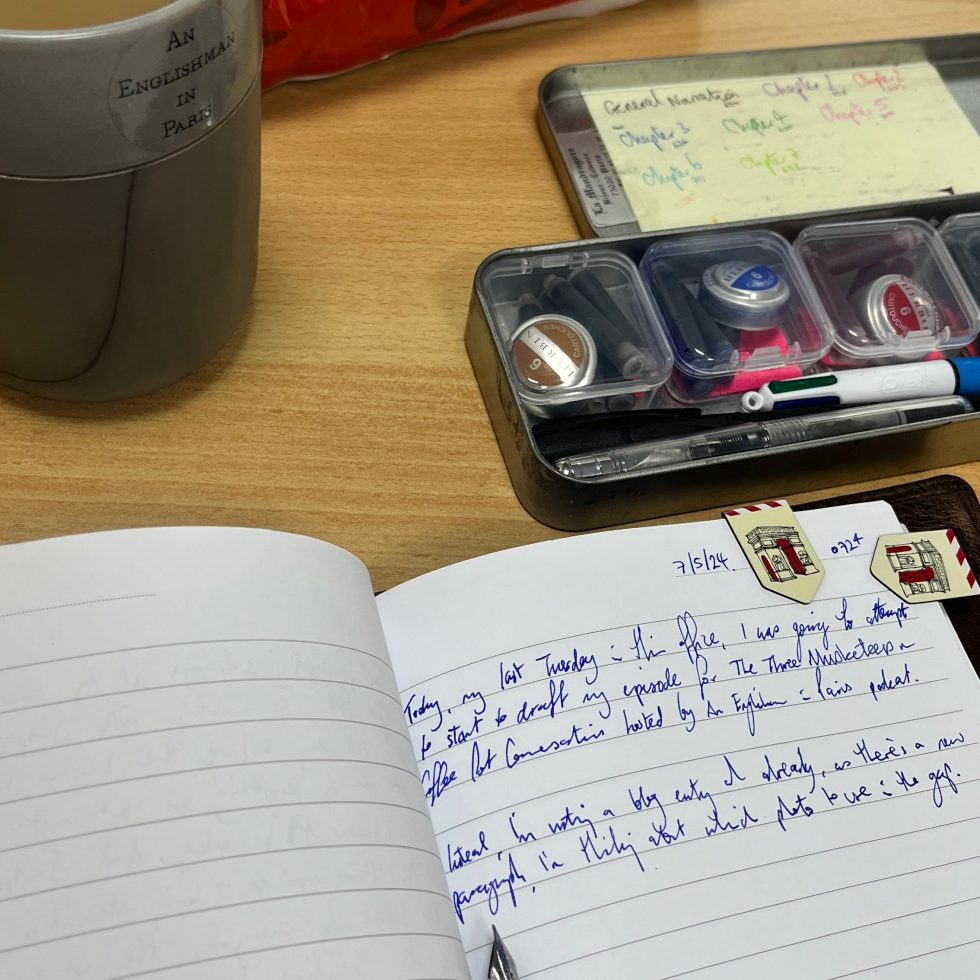 AN
ENGLISHMAN
IN
PARIS
General Narration
Chapter 1
Chapter 2
Chapter 3
Chapter 4
Chapter 5
Chapter 6
Chapter 7
La Mandragore
HERBIN
CARTOUCHES
6
6
CARTOUCHES
6
7/5/24.
0724
Today, my last Tuesday in this office, I was going to attempt
to start to draft my episode for The Three Musketeers on
Coffee Pot Conversations hosted by An Englishman in Paris podcast.
Instead, I'm writing a blog entry I already, as there's a new
paragraph, I'm thinking about which photo to use in the gap.